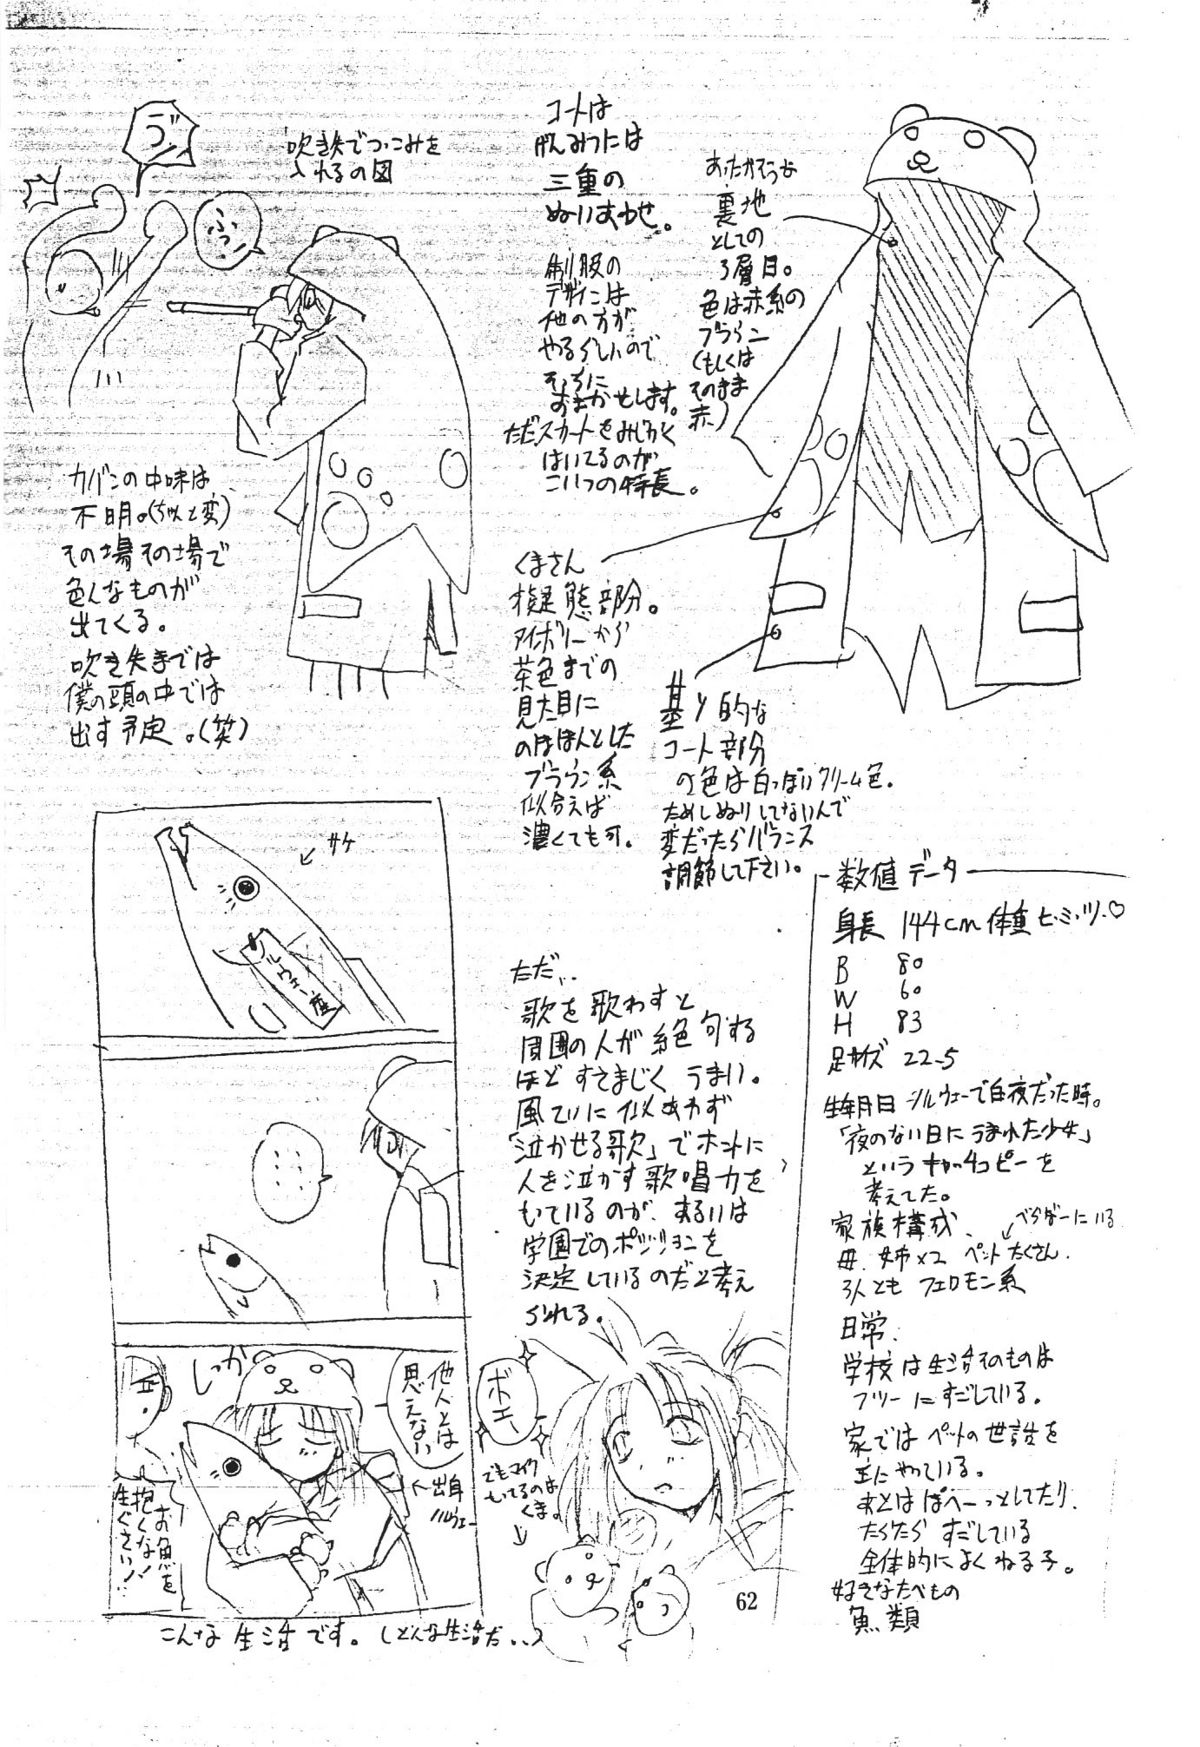 ブッ
ふっ
吹き矢でつっこみを
入れるの図
コートは
厳みつには
三重の
ぬいあわせ。
制服の
デザインは
他の方が
やるらしいので
そちらに
おまかせします。
ただスカートをみじかく
はいてるのが
こいつの特長。
あったかそうな
裏地
としての
3層目。
色は赤系の
ブラウン
(もしくは
そのまま
赤)
カバンの中味は
不明。(ちょっと変)
その場その場で
色んなものが
出てくる。
吹き矢までは
僕の頭の中では
出す予定。(笑)
くまさん
擬態部分。
アイボリーから
茶色までの
見た目に
のほほんとした
ブラウン系
似合えば
濃くても可。
基本的な
コート部分
の色は白っぽいクリーム色。
ためしぬりしてないんで
変だったらバランス
調節して下さい。
サケ
ノルウェー産
しっか
他人とは
思えない
出身
ノルウェー
お魚を
抱くな!
生ぐさい!!
こんな生活です。(どんな生活だ..)
ただ..
歌を歌わすと
周囲の人が絶句する
ほどすさまじくうまい。
風ていに似あわず
「泣かせる歌」でホントに
人を泣かす歌唱力を
もているのが、あるいは
学園でのポジションを
決定しているのだと考え
られる。
ボエ〜
でもマイク
もってるのは
くま。
62
数値データ
身長 144cm 体重 ヒ・ミ・ツ・♡
B 80
W 60
H 83
足サイズ 22.5
生年月日 ノルウェーで白夜だった時。
「夜のない日にうまれた少女」
というキャッチコピーを
考えてた。
家族構成
母、姉×2 ペットたくさん。
3人とも フェロモン系
日常
学校は生活そのものは
フツーにすごしている。
家ではペットの世話を
主にやっている。
あとはぽへーっとしてたり、
だらだらすごしている
全体的によくねる子。
好きなたべもの
魚類